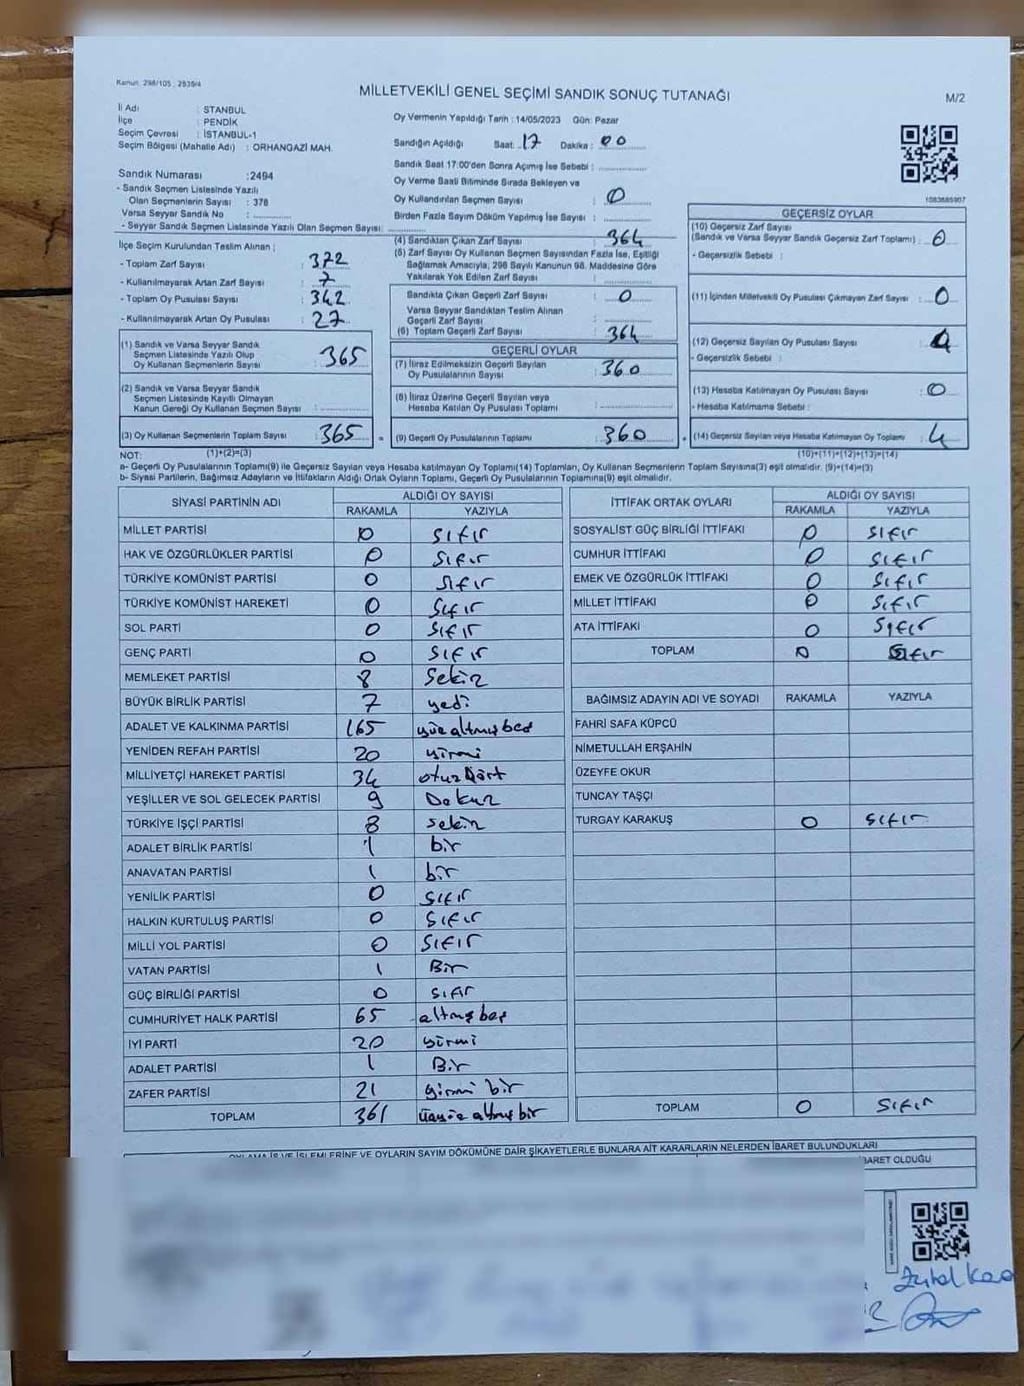 Kanun: 298/105 ; 2839/4
MİLLETVEKİLİ GENEL SEÇİMİ SANDIK SONUÇ TUTANAĞI
M/2
İl Adı : İSTANBUL
İlçe : PENDİK
Seçim Çevresi : İSTANBUL-1
Seçim Bölgesi (Mahalle Adı) : ORHANGAZİ MAH.
Oy Vermenin Yapıldığı Tarih : 14/05/2023 Gün: Pazar
Sandığın Açıldığı Saat: 17 Dakika : 00
Sandık Saat 17:00'den Sonra Açılmış İse Sebebi :
Oy Verme Saati Bitiminde Sırada Bekleyen ve
Oy Kullandırılan Seçmen Sayısı : 0
Birden Fazla Sayım Döküm Yapılmış İse Sayısı :
Sandık Numarası :2494
- Sandık Seçmen Listesinde Yazılı
Olan Seçmenlerin Sayısı : 378
Varsa Seyyar Sandık No :
- Seyyar Sandık Seçmen Listesinde Yazılı Olan Seçmen Sayısı:
İlçe Seçim Kurulundan Teslim Alınan ;
- Toplam Zarf Sayısı : 372
- Kullanılmayarak Artan Zarf Sayısı : 7
- Toplam Oy Pusulası Sayısı : 342
- Kullanılmayarak Artan Oy Pusulası : 27
(1) Sandık ve Varsa Seyyar Sandık
Seçmen Listesinde Yazılı Olup
Oy Kullanan Seçmenlerin Sayısı : 365
(2) Sandık ve Varsa Seyyar Sandık
Seçmen Listesinde Kayıtlı Olmayan
Kanun Gereği Oy Kullanan Seçmen Sayısı :
(3) Oy Kullanan Seçmenlerin Toplam Sayısı : 365 =
(4) Sandıktan Çıkan Zarf Sayısı : 364
(5) Zarf Sayısı Oy Kullanan Seçmen Sayısından Fazla İse, Eşitliği
Sağlamak Amacıyla, 298 Sayılı Kanunun 98. Maddesine Göre
Yakılarak Yok Edilen Zarf Sayısı :
Sandıkta Çıkan Geçerli Zarf Sayısı : 0
Varsa Seyyar Sandıktan Teslim Alınan
Geçerli Zarf Sayısı :
(6) Toplam Geçerli Zarf Sayısı : 364
GEÇERLİ OYLAR
(7) İtiraz Edilmeksizin Geçerli Sayılan
Oy Pusulalarının Sayısı : 360
(8) İtiraz Üzerine Geçerli Sayılan veya
Hesaba Katılan Oy Pusulası Toplamı :
(9) Geçerli Oy Pusulalarının Toplamı : 360 +
1083685907
GEÇERSİZ OYLAR
(10) Geçersiz Zarf Sayısı
(Sandık ve Varsa Seyyar Sandık Geçersiz Zarf Toplamı) : 0
- Geçersizlik Sebebi :
(11) İçinden Milletvekili Oy Pusulası Çıkmayan Zarf Sayısı : 0
(12) Geçersiz Sayılan Oy Pusulası Sayısı : 4
- Geçersizlik Sebebi :
(13) Hesaba Katılmayan Oy Pusulası Sayısı : 0
- Hesaba Katılmama Sebebi :
(14) Geçersiz Sayılan veya Hesaba Katılmayan Oy Toplamı : 4
NOT: (1)+(2)=(3) (10)+(11)+(12)+(13)=(14)
a- Geçerli Oy Pusulalarının Toplamı(9) ile Geçersiz Sayılan veya Hesaba katılmayan Oy Toplamı(14) Toplamları, Oy Kullanan Seçmenlerin Toplam Sayısına(3) eşit olmalıdır. (9)+(14)=(3)
b- Siyasi Partilerin, Bağımsız Adayların ve İttifakların Aldığı Ortak Oyların Toplamı, Geçerli Oy Pusulalarının Toplamına(9) eşit olmalıdır.
SİYASİ PARTİNİN ADI ALDIĞI OY SAYISI
RAKAMLA YAZIYLA
MİLLET PARTİSİ 0 sıfır
HAK VE ÖZGÜRLÜKLER PARTİSİ 0 sıfır
TÜRKİYE KOMÜNİST PARTİSİ 0 sıfır
TÜRKİYE KOMÜNİST HAREKETİ 0 sıfır
SOL PARTİ 0 sıfır
GENÇ PARTİ 0 sıfır
MEMLEKET PARTİSİ 8 sekiz
BÜYÜK BİRLİK PARTİSİ 7 yedi
ADALET VE KALKINMA PARTİSİ 165 yüzaltmışbeş
YENİDEN REFAH PARTİSİ 20 yirmi
MİLLİYETÇİ HAREKET PARTİSİ 34 otuzdört
YEŞİLLER VE SOL GELECEK PARTİSİ 9 Dokuz
TÜRKİYE İŞÇİ PARTİSİ 8 sekiz
ADALET BİRLİK PARTİSİ 1 bir
ANAVATAN PARTİSİ 1 bir
YENİLİK PARTİSİ 0 sıfır
HALKIN KURTULUŞ PARTİSİ 0 sıfır
MİLLİ YOL PARTİSİ 0 sıfır
VATAN PARTİSİ 1 Bir
GÜÇ BİRLİĞİ PARTİSİ 0 sıfır
CUMHURİYET HALK PARTİSİ 65 altmışbeş
İYİ PARTİ 20 yirmi
ADALET PARTİSİ 1 Bir
ZAFER PARTİSİ 21 yirmi bir
TOPLAM 361 üçyüz altmış bir
İTTİFAK ORTAK OYLARI ALDIĞI OY SAYISI
RAKAMLA YAZIYLA
SOSYALİST GÜÇ BİRLİĞİ İTTİFAKI 0 sıfır
CUMHUR İTTİFAKI 0 sıfır
EMEK VE ÖZGÜRLÜK İTTİFAKI 0 sıfır
MİLLET İTTİFAKI 0 sıfır
ATA İTTİFAKI 0 sıfır
TOPLAM 0 sıfır
BAĞIMSIZ ADAYIN ADI VE SOYADI RAKAMLA YAZIYLA
FAHRİ SAFA KÜPCÜ
NİMETULLAH ERŞAHİN
ÜZEYFE OKUR
TUNCAY TAŞÇI
TURGAY KARAKUŞ 0 sıfır
TOPLAM 0 sıfır
OYLAMA İŞ VE İŞLEMLERİNE VE OYLARIN SAYIM DÖKÜMÜNE DAİR ŞİKAYETLERLE BUNLARA AİT KARARLARIN NELERDEN İBARET BULUNDUKLARI
İBARET OLDUĞU